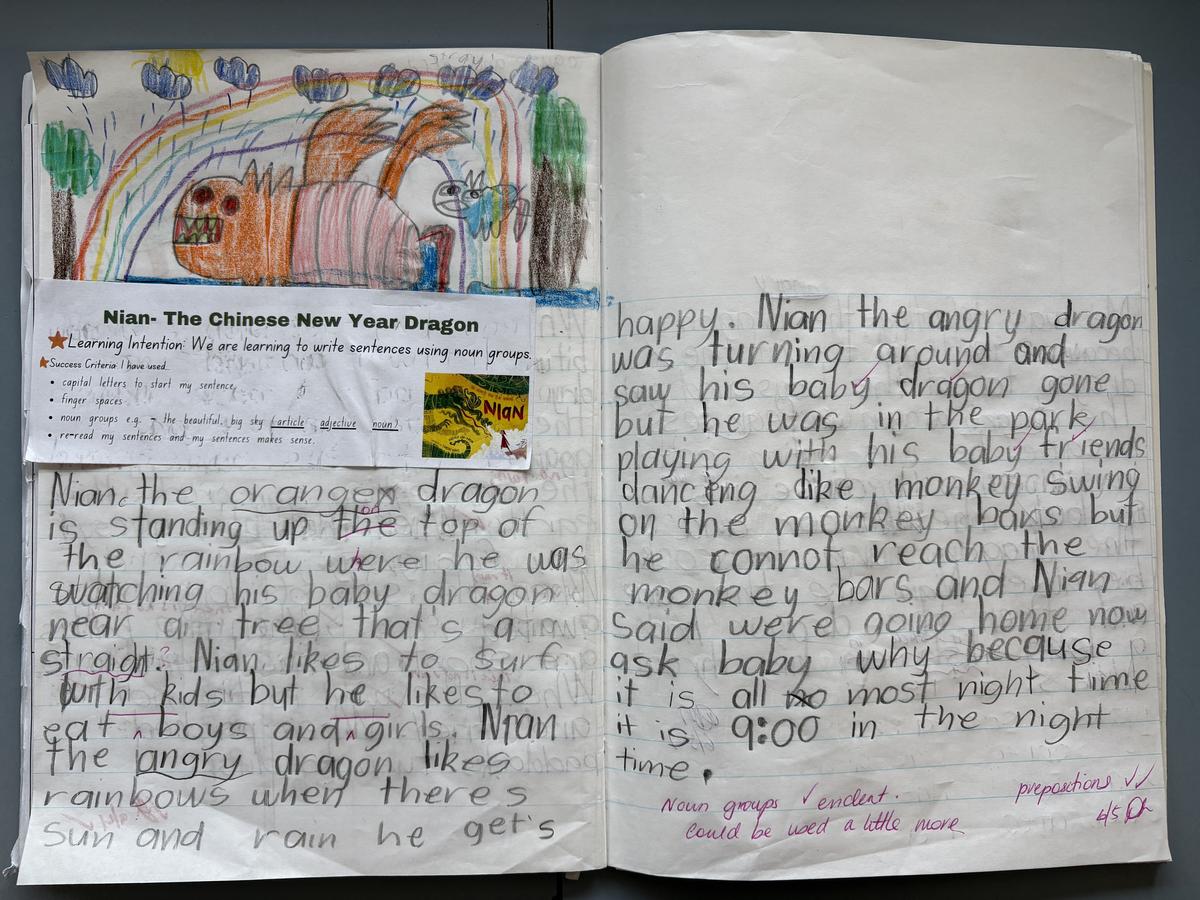 Nian- The Chinese New Year Dragon
Learning Intention: We are learning to write sentences using noun groups.
Success Criteria: I have used...
• capital letters to start my sentence
• finger spaces
• noun groups e.g. - the beautiful, big sky (article adjective noun)
• re-read my sentences and my sentences makes sense.
NIAN
Nian, the orange dragon
is standing up the top of
on
the rainbow where he was
watching his baby dragon
near a tree that's a
straight? Nian likes to surf
with kids but he likes to
eat boys and girls. Nian
the angry dragon likes
rainbows when there's
sun and rain he get's
happy. Nian the angry dragon
was turning around and
saw his baby dragon gone
but he was in the park
playing with his baby friends
dancing like monkey swing
on the monkey bars but
he connot reach the
monkey bars and Nian
said were going home now
ask baby why because
it is all most night time
it is 9:00 in the night
time.
Noun groups ✓ evident.
could be used a little more
prepositions ✓✓